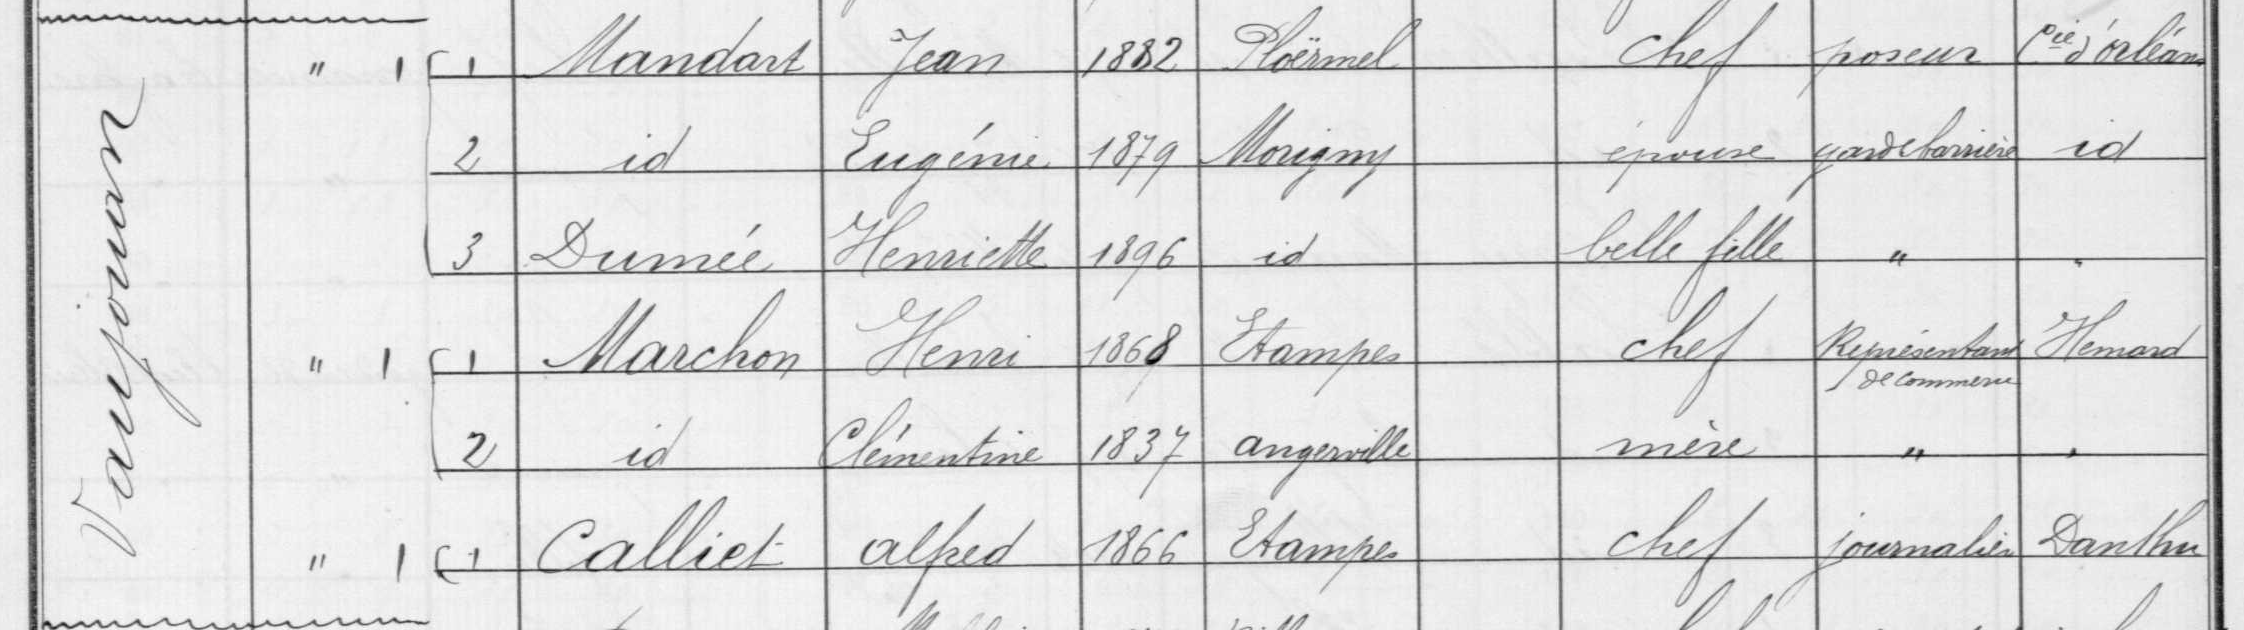 Vaujouan
" 1 1 Mandart Jean 1882 Ploërmel chef poseur Cie d'orléans
2 id Eugénie 1879 Morigny épouse garde barrière id
3 Dumée Henriette 1896 id belle fille " "
" 1 1 Marchon Henri 1868 Etampes chef Représentant de commerce Hemard
2 id Clémentine 1837 angerville mère " "
" 1 1 Calliet alfred 1866 Etampes chef journalier Danthu